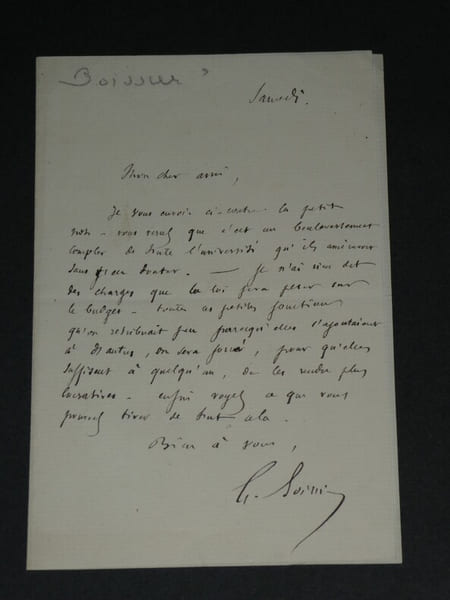 Boissier
Samedi.
Mon cher ami,
Je vous envoie ci-contre la petite
note - vous verrez que c'est un bouleversement
complet de toute l'université qu'ils amènent
sans s'en douter. — Je n'ai rien dit
des charges que la loi fera peser sur
le budget - toutes ces petites fonctions
qu'on retribuait peu parcequ'elles s'ajoutaient
à d'autres, on sera forcé, pour qu'elles
suffisent à quelqu'un, de les rendre plus
lucratives - enfin voyez ce que vous
pouvez tirer de tout cela.
Bien à vous,
G. Boissier